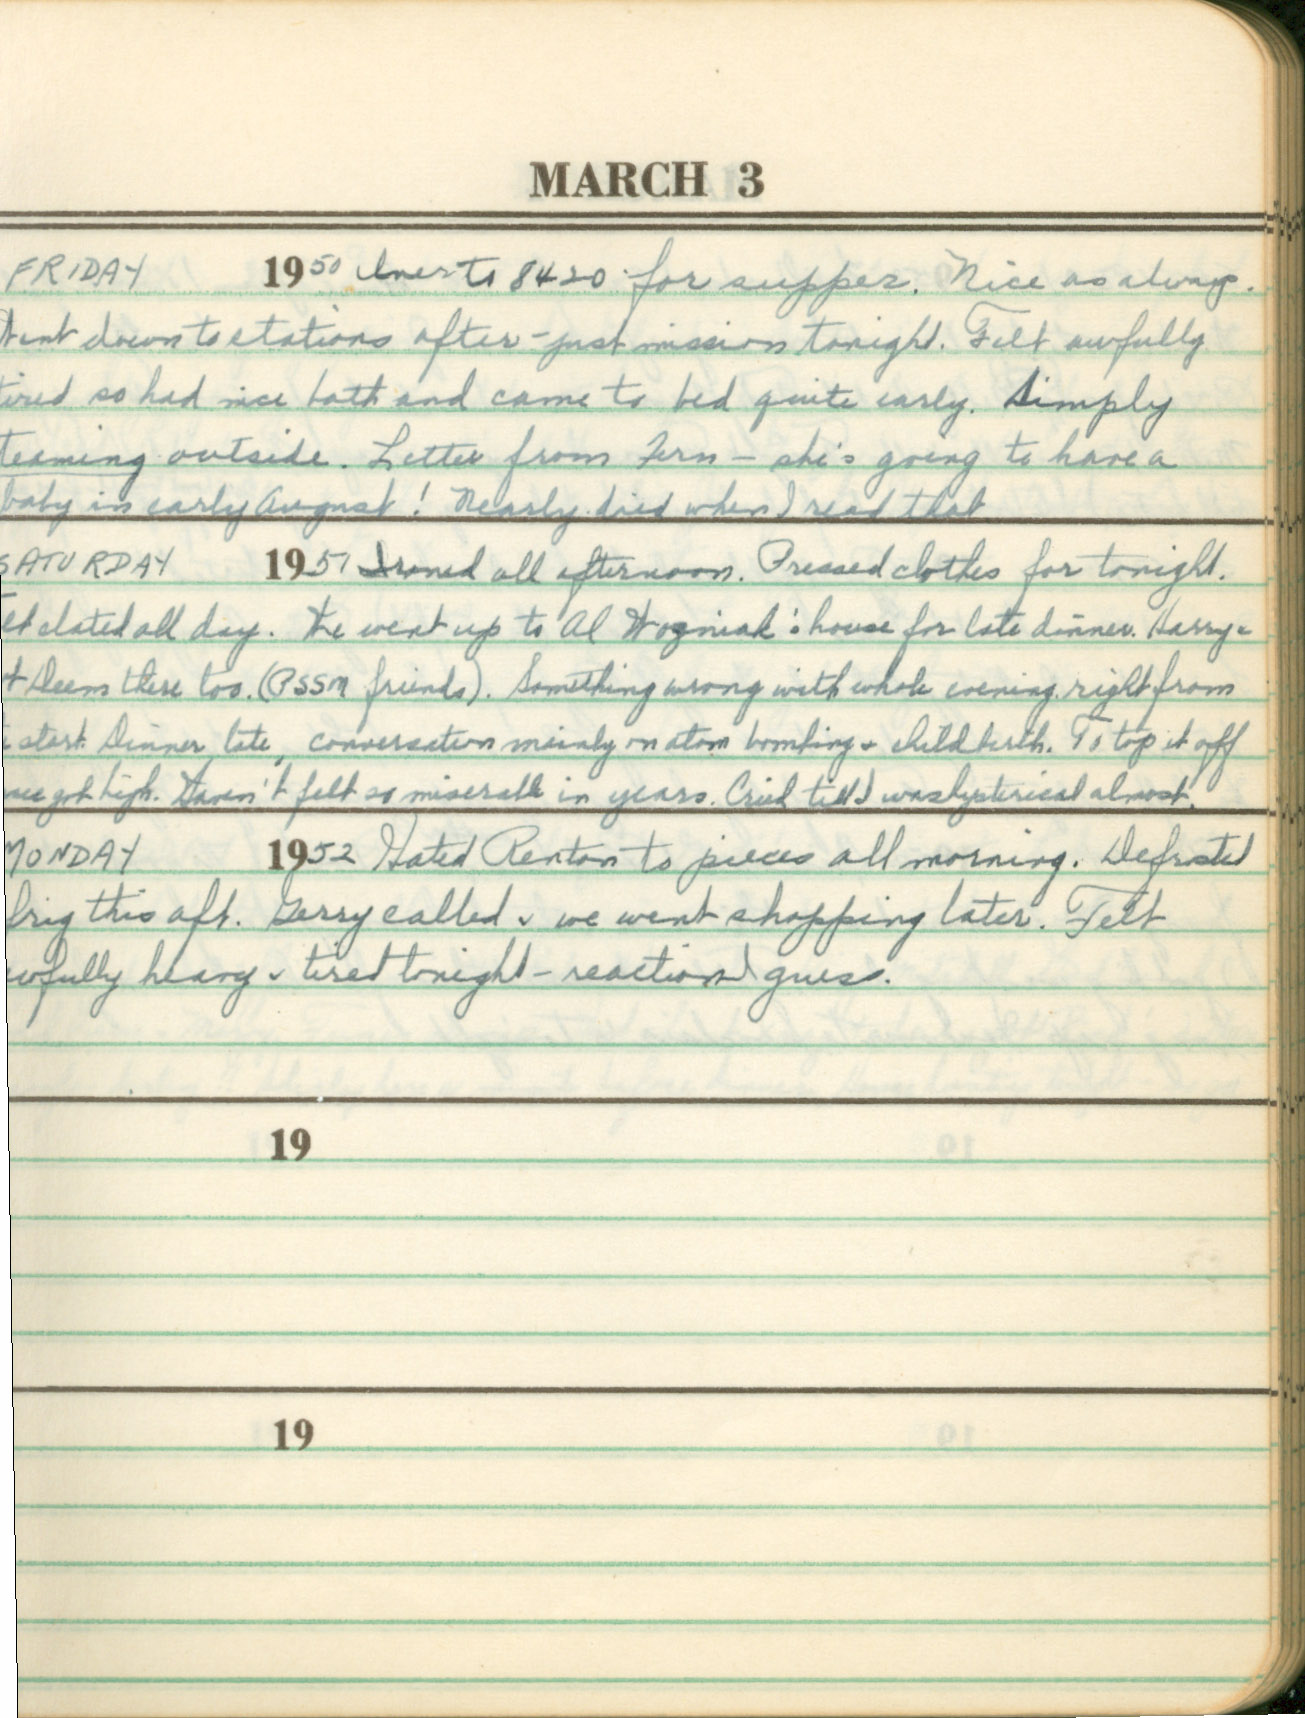 MARCH 3
FRIDAY 1950 Over to 8420 for supper. Nice as always.
Went down to stations after - just mission tonight. Felt awfully
tired so had nice bath and came to bed quite early. Simply
teeming outside. Letter from Fern - she's going to have a
baby in early August! Nearly died when I read that
SATURDAY 1951 Ironed all afternoon. Pressed clothes for tonight.
elt elated all day. We went up to Al Wozniak's house for late dinner. Harry &
there too. (PSSM friends). Something wrong with whole evening right from
start. Dinner late, conversation mainly on atom bombing & childbirth. To top it off
got high. Haven't felt so miserable in years. Cried till I was hysterical almost.
MONDAY 1952 Hated Renton to pieces all morning. Defrosted
frig this aft. Gerry called & we went shopping later. Felt
awfully heavy & tired tonight - reaction I guess.
19
19